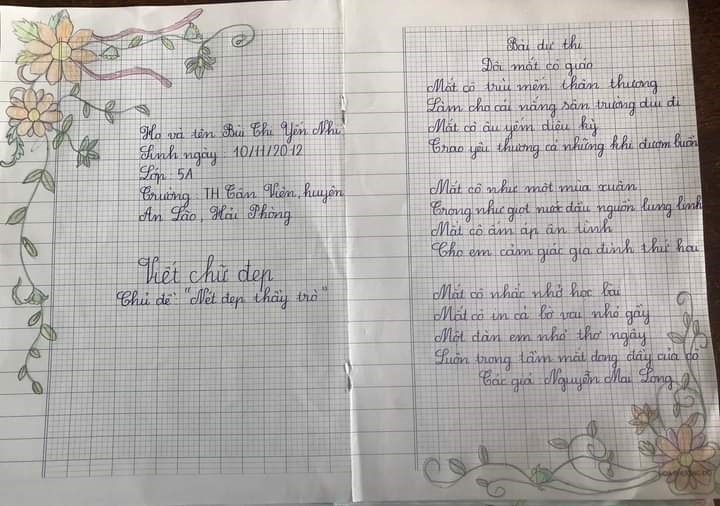 Họ và tên Bùi Thị Yến Nhi
Sinh ngày: 10/11/2012
Lớp 5A
Trường TH Tân Viên, huyện
An Lão, Hải Phòng
Viết chữ đẹp
Chủ đề "Nét đẹp thầy trò"
Bài dự thi
Đôi mắt cô giáo
Mắt cô trìu mến thân thương
Làm cho cái nắng sân trường dịu đi
Mắt cô âu yếm diệu kỳ
Trao yêu thương cả những khi đượm buồn
Mắt cô như một mùa xuân
Trong như giọt nước đầu nguồn lung linh
Mắt cô ấm áp ân tình
Cho em cảm giác gia đình thứ hai
Mắt cô nhắc nhở học bài
Mắt cô in cả bờ vai nhỏ gầy
Một đàn em nhỏ thơ ngây
Luôn trong tầm mắt dong đầy của cô
Tác giả Nguyễn Mai Long